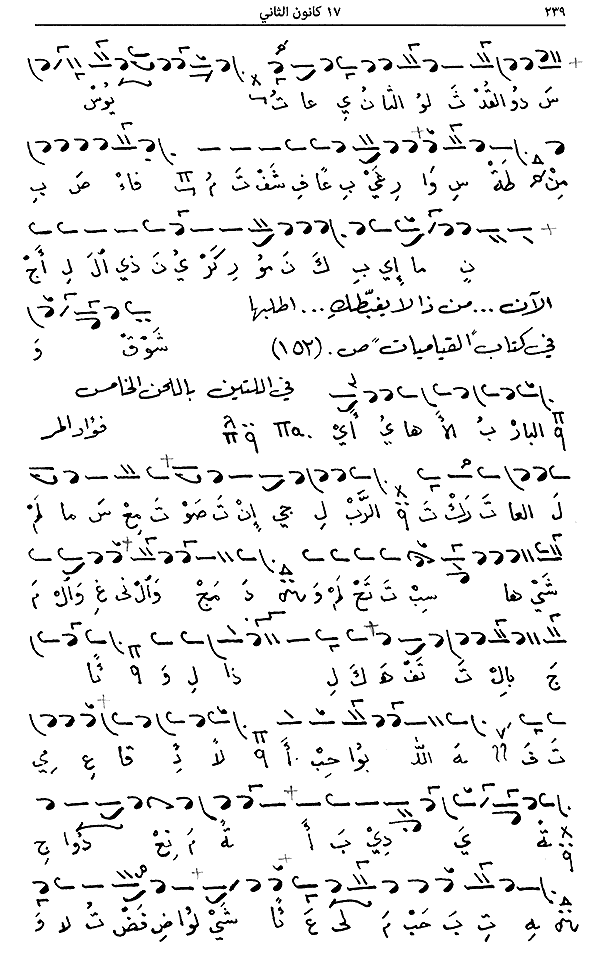 ٢٣٩ ١٧ كانون الثاني
سَ دو القُدْ ثَ لو الثا نُ يِ عا تُ يُوسْ
مِنْ طَةْ سِ وَا رِ غَيْ بِ عًا فِ شَفْ تَ مُ فاءْ صَ بِ
نِ ما إِي بِ كَ نَ مو رِ كَزْ يُ نَ ذي الْ لِ أَجْ
الآن ...من ذا لا يغبّطكِ... اطلبها
في كتاب "القياميات" ص. (١٥٢) شَوْقْ وَ
في اللتين باللحن الخامس
البارْ بُ الأَ ها يُ أَيْ πa. فؤاد المر
لَ العا تَ رَكْ تَ الرَّبْ لِ جي إِنْ تَ صَوْ تَ مِعْ سَ ما لَمْ
شَيْ ها سِبْ تَ تَحْ لَمْ وَ دَ مَجْ وَالْ نى غِ وَالْ مَ
جَ بِالْ تَ تَفْ هَ كَ لِ ذا لِ وَ ثًا
تَ فَ هَ اللّٰ بوا حِبْ أَ لاَ ذِ قا عِ مِي
ةْ يَ دِيْ بَ أَ ةُ مَ نِعْ دُوا جِ
هِ تِ بَ حَبْ مَ لى عَ ثًا شَيْ لُوا ضِ فَضْ تُ لا وَ